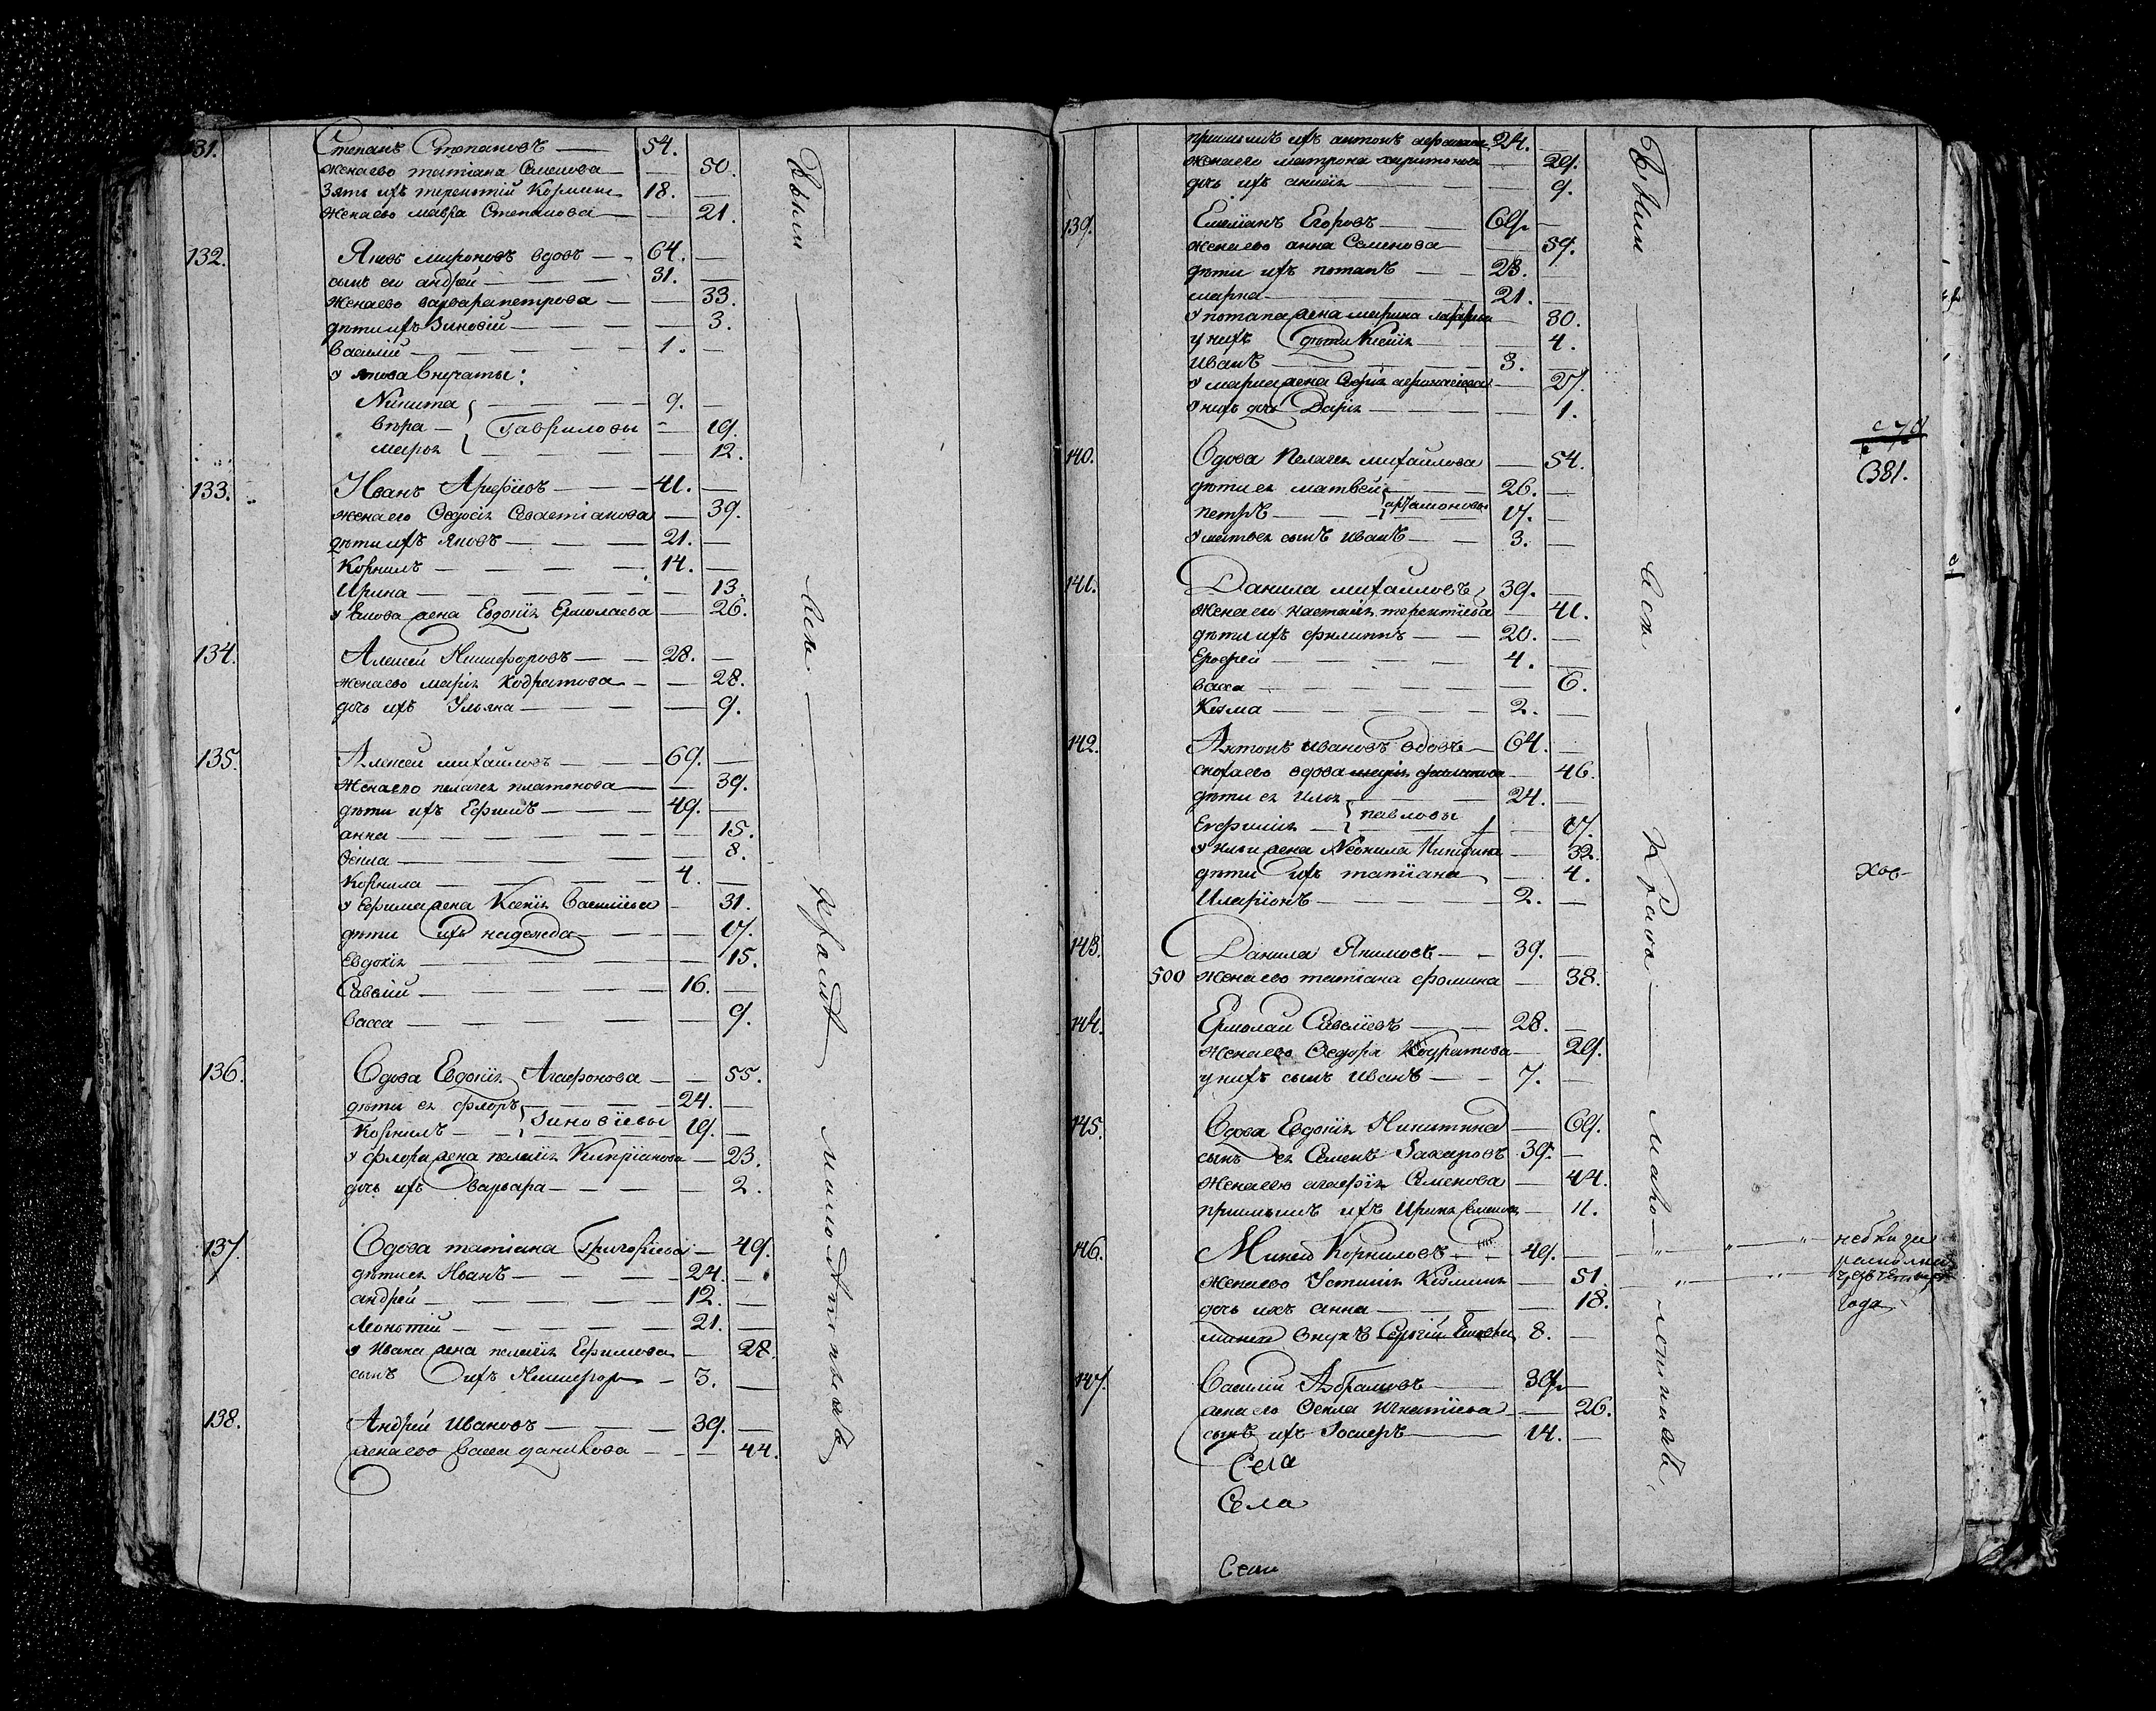 131. Степанъ Степановъ — 54.
жена ево татиана Семенова — 50.
зять ихъ терентий Корнил 18.
жена ево мавра Степанова — 21.
132. Яковъ мироновъ вдовъ — 64.
сынъ ево андрей — 31.
жена ево варвара петрова — 33.
дети ихъ Зиновiй — 3.
василiй — 1.
у якова внучаты:
Никита — 9.
вера — Гавриловы — 19.
марья — 12.
133. Иванъ Арефiевъ — 41.
жена его Федосiя Севастiанова — 39.
дети ихъ яковъ — 21.
Корнилъ — 14.
Ирина — 13.
у якова жена Евдокiя Ермолаева — 26.
134. Алексей Никифоровъ — 28.
жена ево марiя Кодратова — 28.
дочь ихъ Ульяна — 9.
135. Алексей михаиловъ — 69.
Жена его пелагея платонова — 39.
дети ихъ Ефимъ — 49.
анна — 15.
Фекла — 8.
Корнила — 4.
у ефима жена Ксенiя Василiева — 31.
дети ихъ надежда — 17.
Евдокiя — 15.
Савелiй — 16.
васса — 9.
136. Вдова Евдокiя Агафонова — 55.
дети ея флоръ — 24.
Корнилъ — Зиновiевы 19.
у флора жена пелагiя Кипрiанова — 23.
дочь ихъ варвара — 2.
137. Вдова татиана Григорiева — 49.
дети ея Иванъ — 24.
андрей — 12.
Леонтiй — 21.
у Ивана жена пелагiя Ефимова — 28.
сынъ ихъ Никифоръ — 5.
138. Андрей Ивановъ — 39.
жена ево васса данилова — 44.
Вънии — Вся — Краив — мало
приимышъ ихъ антонъ 24.
жена его матрона харитонова 29.
дочь ихъ анисiя — 9.
139. Емелiанъ Егоровъ — 69.
жена ево анна Семенова — 59.
дети ихъ потапъ — 23.
марка — 21.
у потапа жена марина 30.
у нихъ дети Ксенiя — 4.
Иванъ — 3.
у марка жена Софiя афонасiева — 27.
у нихъ дочь Дарiя — 1.
140. Вдова Пелагея михаилова — 54.
дети ея матвей — 26.
петръ — артамоновы 17.
у матвея сынъ иванъ — 3.
381.
141. Данила михаиловъ 39.
жена его настасiя терентiева — 41.
дети ихъ филиппъ — 20.
Ерофей — 4.
васса — 6.
Козма — 2.
142. Антонъ ивановъ вдовъ — 64.
сноха ево вдова 46.
дети ея Илья — 24.
Евфимiя — павловы — 17.
у Ильи жена Неонила Никитина — 32.
дети ихъ татiана — 4.
Иларiонъ — 2.
143. Данила Якимовъ — 39.
500 жена ево татiана фомина — 38.
144. Ермолай Савелiевъ — 28.
жена ево Федора Кодратова — 29.
у нихъ сынъ иванъ — 7.
145. Вдова Евдокiя Никитина — 69.
сынъ ея Семенъ Захаровъ 39.
жена ево агафiя Семенова — 44.
приимышъ ихъ Ирина 11.
146. Михей Корниловъ — 49.
жена ево Устинiя Козмина — 51.
дочь ихъ анна — 18.
внукъ Сергiй 8.
147. Василiй Абрамовъ — 39.
жена ево Фекла Игнатiева — 26.
сынъ ихъ 14.
Села
Села
Села
года